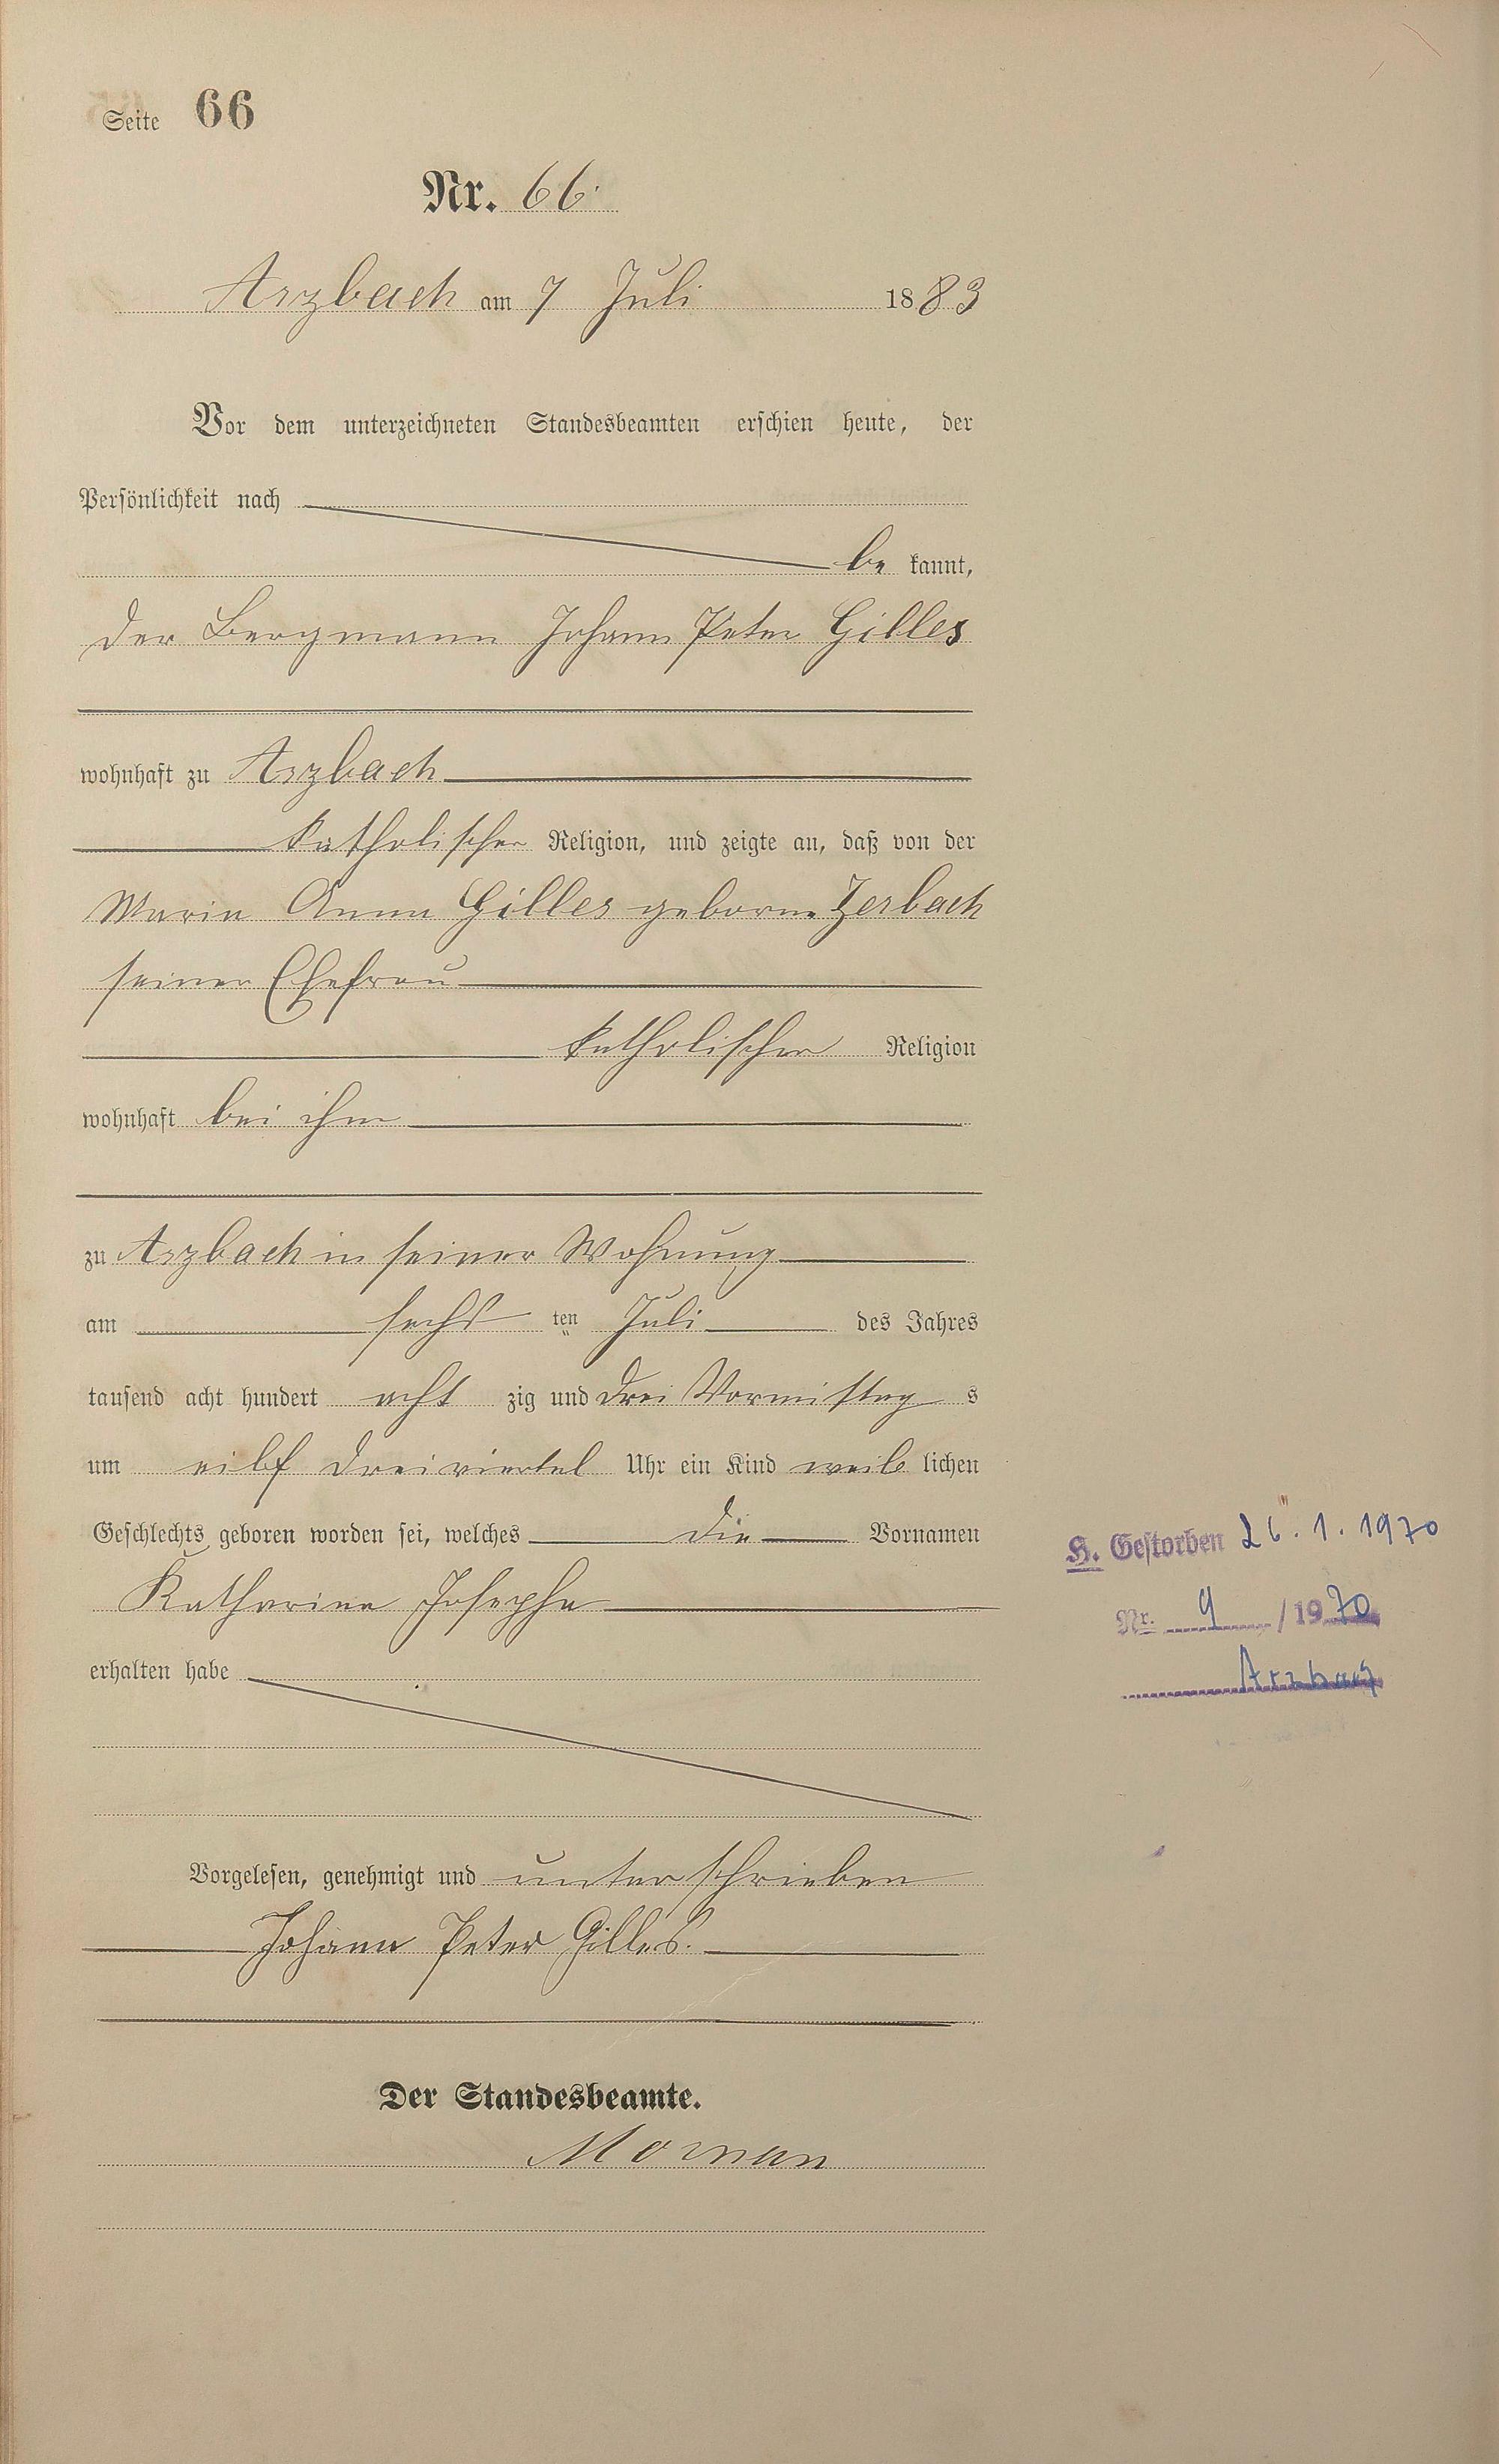 Seite 66
Nr. 66.
Arzbach am 7 Juli 1883
Vor dem unterzeichneten Standesbeamten erschien heute, der
Persönlichkeit nach
be kannt,
der Bergmann Johann Peter Gilles
wohnhaft zu Arzbach
katholischer Religion, und zeigte an, daß von der
Maria Anna Gilles geborne Zerbach
seiner Ehefrau
katholischer Religion
wohnhaft bei ihm
zu Arzbach in seiner Wohnung
am sechs ten Juli des Jahres
tausend acht hundert acht zig und drei Vormittag s
um eilf dreiviertel Uhr ein Kind weib lichen
Geschlechts geboren worden sei, welches die Vornamen
Katharina Josepha
erhalten habe
Vorgelesen, genehmigt und unterschrieben
Johann Peter Gilles.
Der Standesbeamte.
Morman
H. Gestorben 26. 1. 1970
Nr. 9 / 1970
Arzbach